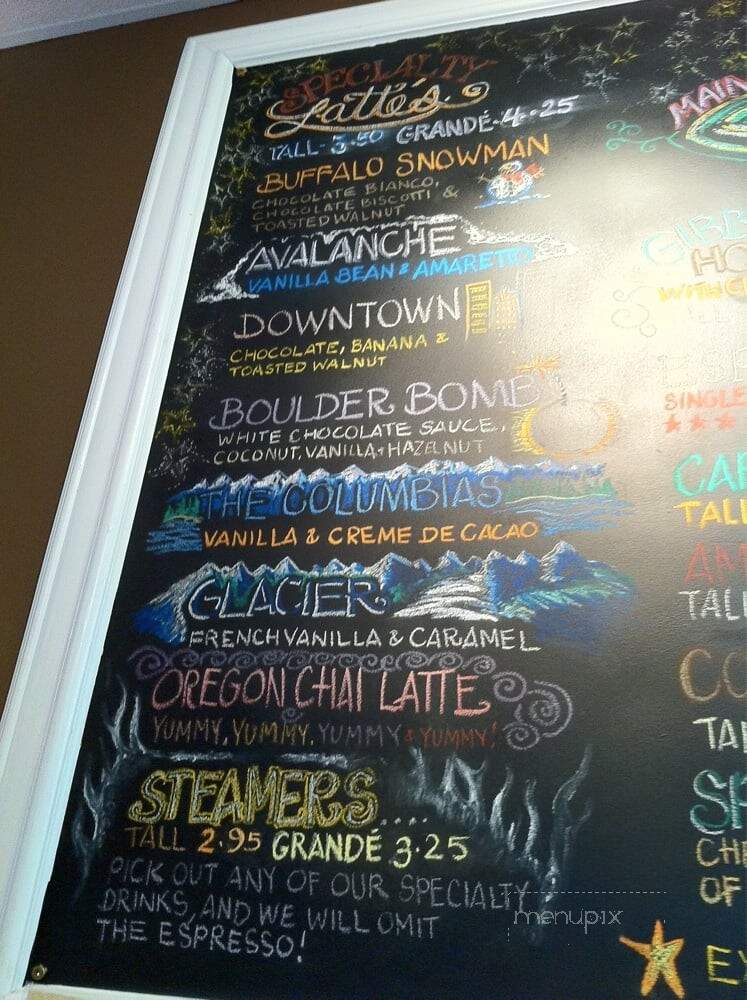 SPECIALTY
Latté's
TALL- 3.50 GRANDÉ- 4.25
BUFFALO SNOWMAN
CHOCOLATE BIANCO,
CHOCOLATE BISCOTTI &
TOASTED WALNUT
AVALANCHE
VANILLA BEAN & AMARETTO
DOWNTOWN
CHOCOLATE, BANANA &
TOASTED WALNUT
BOULDER BOMB
WHITE CHOCOLATE SAUCE,
COCONUT, VANILLA, & HAZELNUT
THE COLUMBIAS
VANILLA & CREME DE CACAO
GLACIER
FRENCH VANILLA & CARAMEL
OREGON CHAI LATTE
YUMMY, YUMMY, YUMMY & YUMMY!
STEAMERS....
TALL 2.95 GRANDÉ 3.25
PICK OUT ANY OF OUR SPECIALTY
DRINKS, AND WE WILL OMIT
THE ESPRESSO!
MAIN
HO
SINGLE
TALL
AM
TALL
CO
TA
SP
CH
OF
menupix